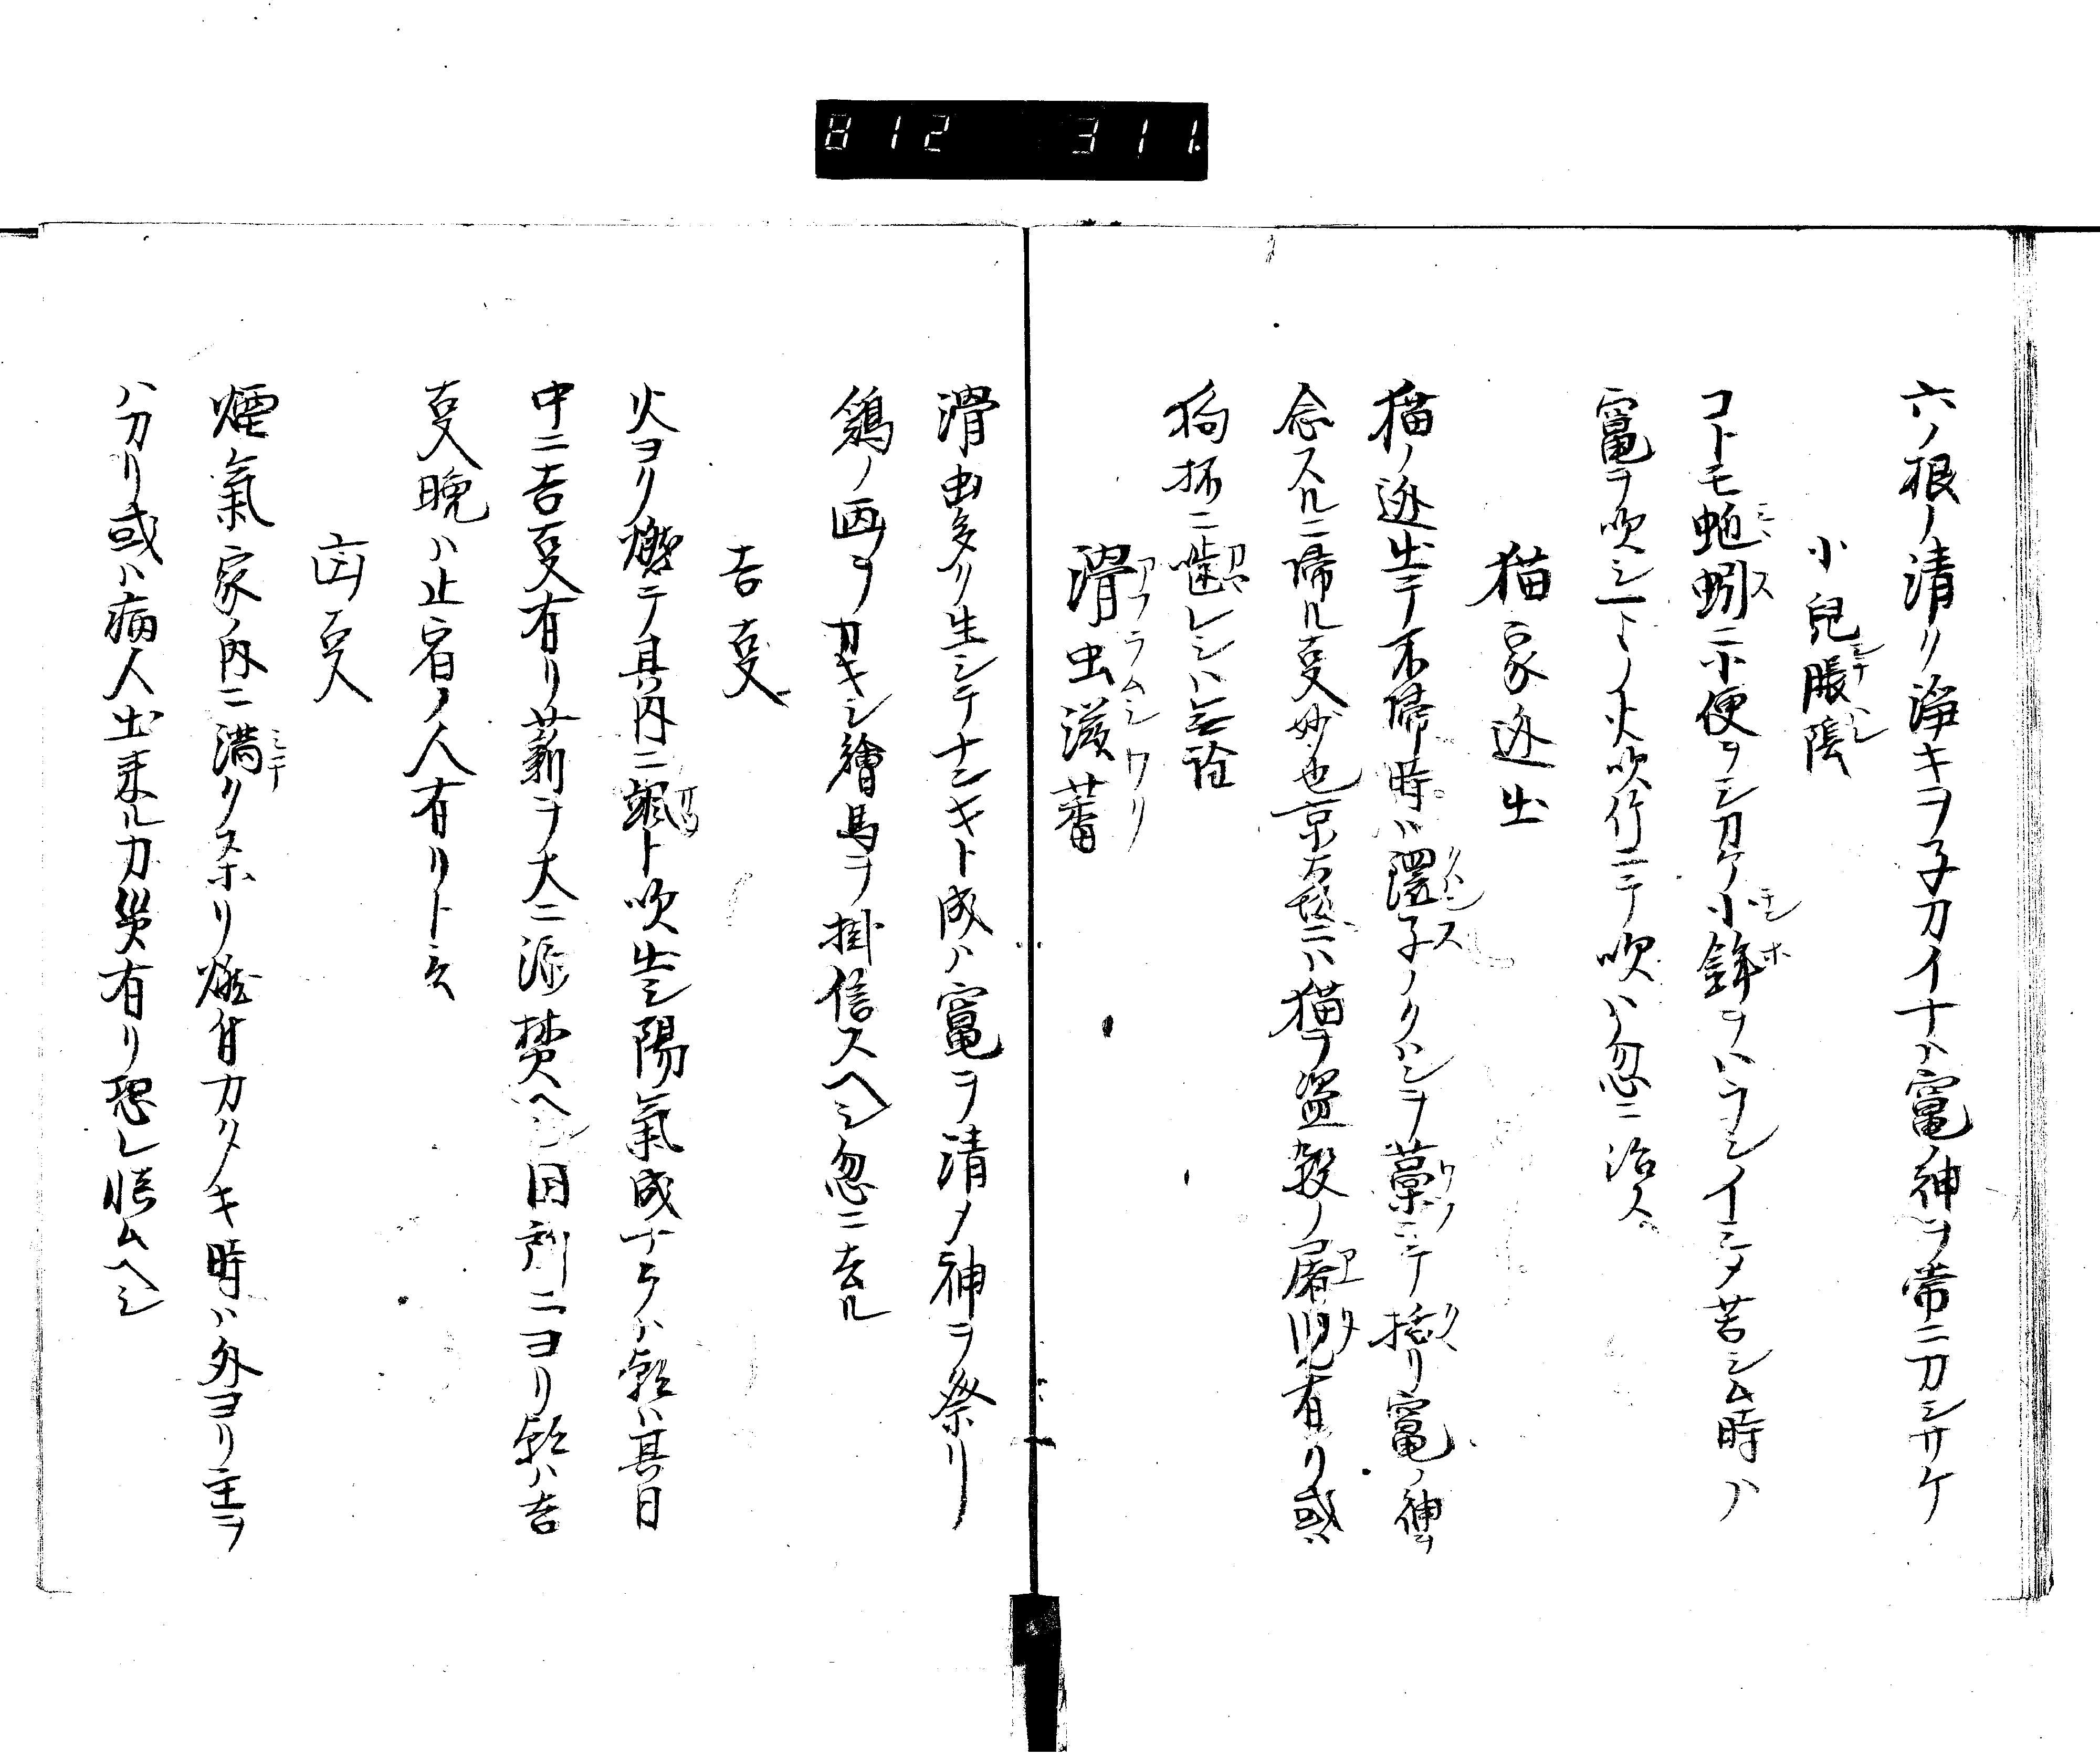 812 311.
六ノ根ノ清リ浄キヲ子カイナハ竈ノ神ヲ常ニカシサケ
小兒脹陰
コトモ蚯蚓ニ小便ヲシカケ小鉾ヲハラシイミタ苦シム時ハ
竈ヲ吹シ一ト火吹竹ニテ吹ハ忽ニ治ス
猫家迯出
猫ノ迯出テ不帰時ハ澀子ノクハシヲ藁ニテ括リ竈ノ神ヲ
念スルニ帰ル叓妙也京大坂ニハ猫ヲ盗殺ノ屠児有リ或ハ
狗抔ニ噛レシハ無詮
滑虫滋蕃
滑虫多ク生シテナンキト成ハ竈ヲ清メ神ヲ祭リ
鶏ノ画ヲカキシ繪馬ヲ掛信スヘシ忽ニ去ル
吉叓
火ヨク燃テ其内ニ颯ト吹出シ陽氣成ナラハ朝ハ其日
中ニ吉叓有リ薪ヲ大ニ添焚ヘシ因所ニヨリ朝ハ吉
叓晩ハ止宿ノ人有リト云
凶叓
煙氣家ノ内ニ満クスホリ燃付カタキ時ハ外ヨリ主ヲ
ハカリ或ハ病人出来ルカ災有リ恐レ慎ムヘシ